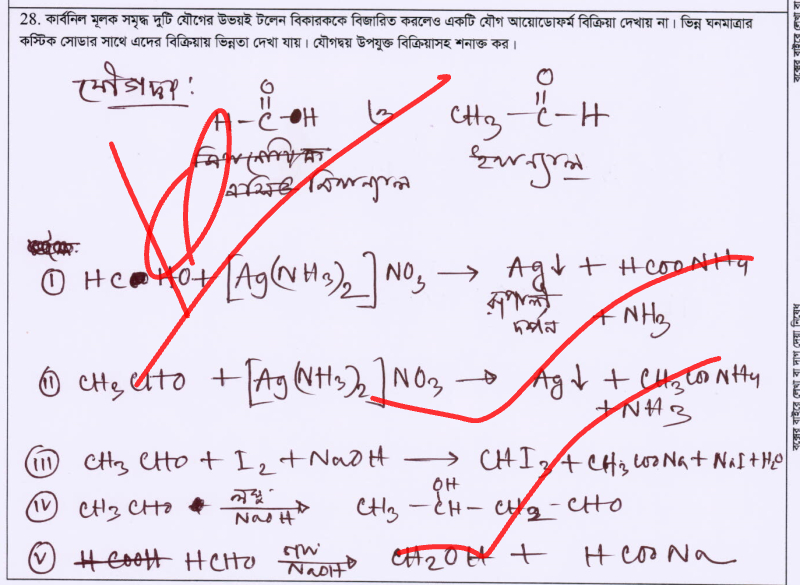 28. কার্বনিল মূলক সমৃদ্ধ দুটি যৌগের উভয়ই টলেন বিকারককে বিজারিত করলেও একটি যৌগ আয়োডোফর্ম বিক্রিয়া দেখায় না। ভিন্ন ঘনমাত্রার
কস্টিক সোডার সাথে এদের বিক্রিয়ায় ভিন্নতা দেখা যায়। যৌগদ্বয় উপযুক্ত বিক্রিয়াসহ শনাক্ত কর।
যৌগদ্বয়:
O O
|| ||
H - C - H ও CH3 - C - H
মিথান্যাল ইথান্যাল
(i) HCHO + [Ag(NH3)2]NO3 → Ag↓ + HCOONH4
রূপালী দর্পন + NH3
(ii) CH3CHO + [Ag(NH3)2]NO3 → Ag↓ + CH3COONH4
+ NH3
(iii) CH3CHO + I2 + NaOH → CHI3 + CH3COONa + NaI + H2O
OH
(iv) CH3CHO লঘু NaOH → CH3 - CH - CH2 - CHO
(v) HCHO NaOH → CH2OH + HCOONa
বক্সের বাইরে লেখা বা দাগ দেয়া নিষেধ